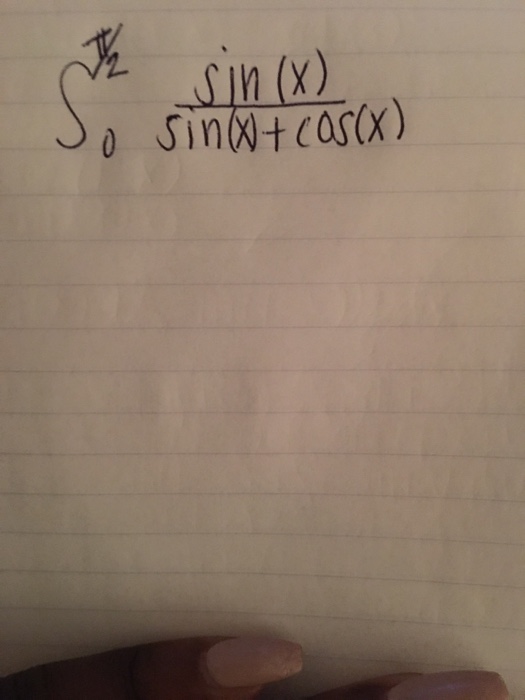 ∫₀^π/2 sin(x)/sin(x)+cos(x)